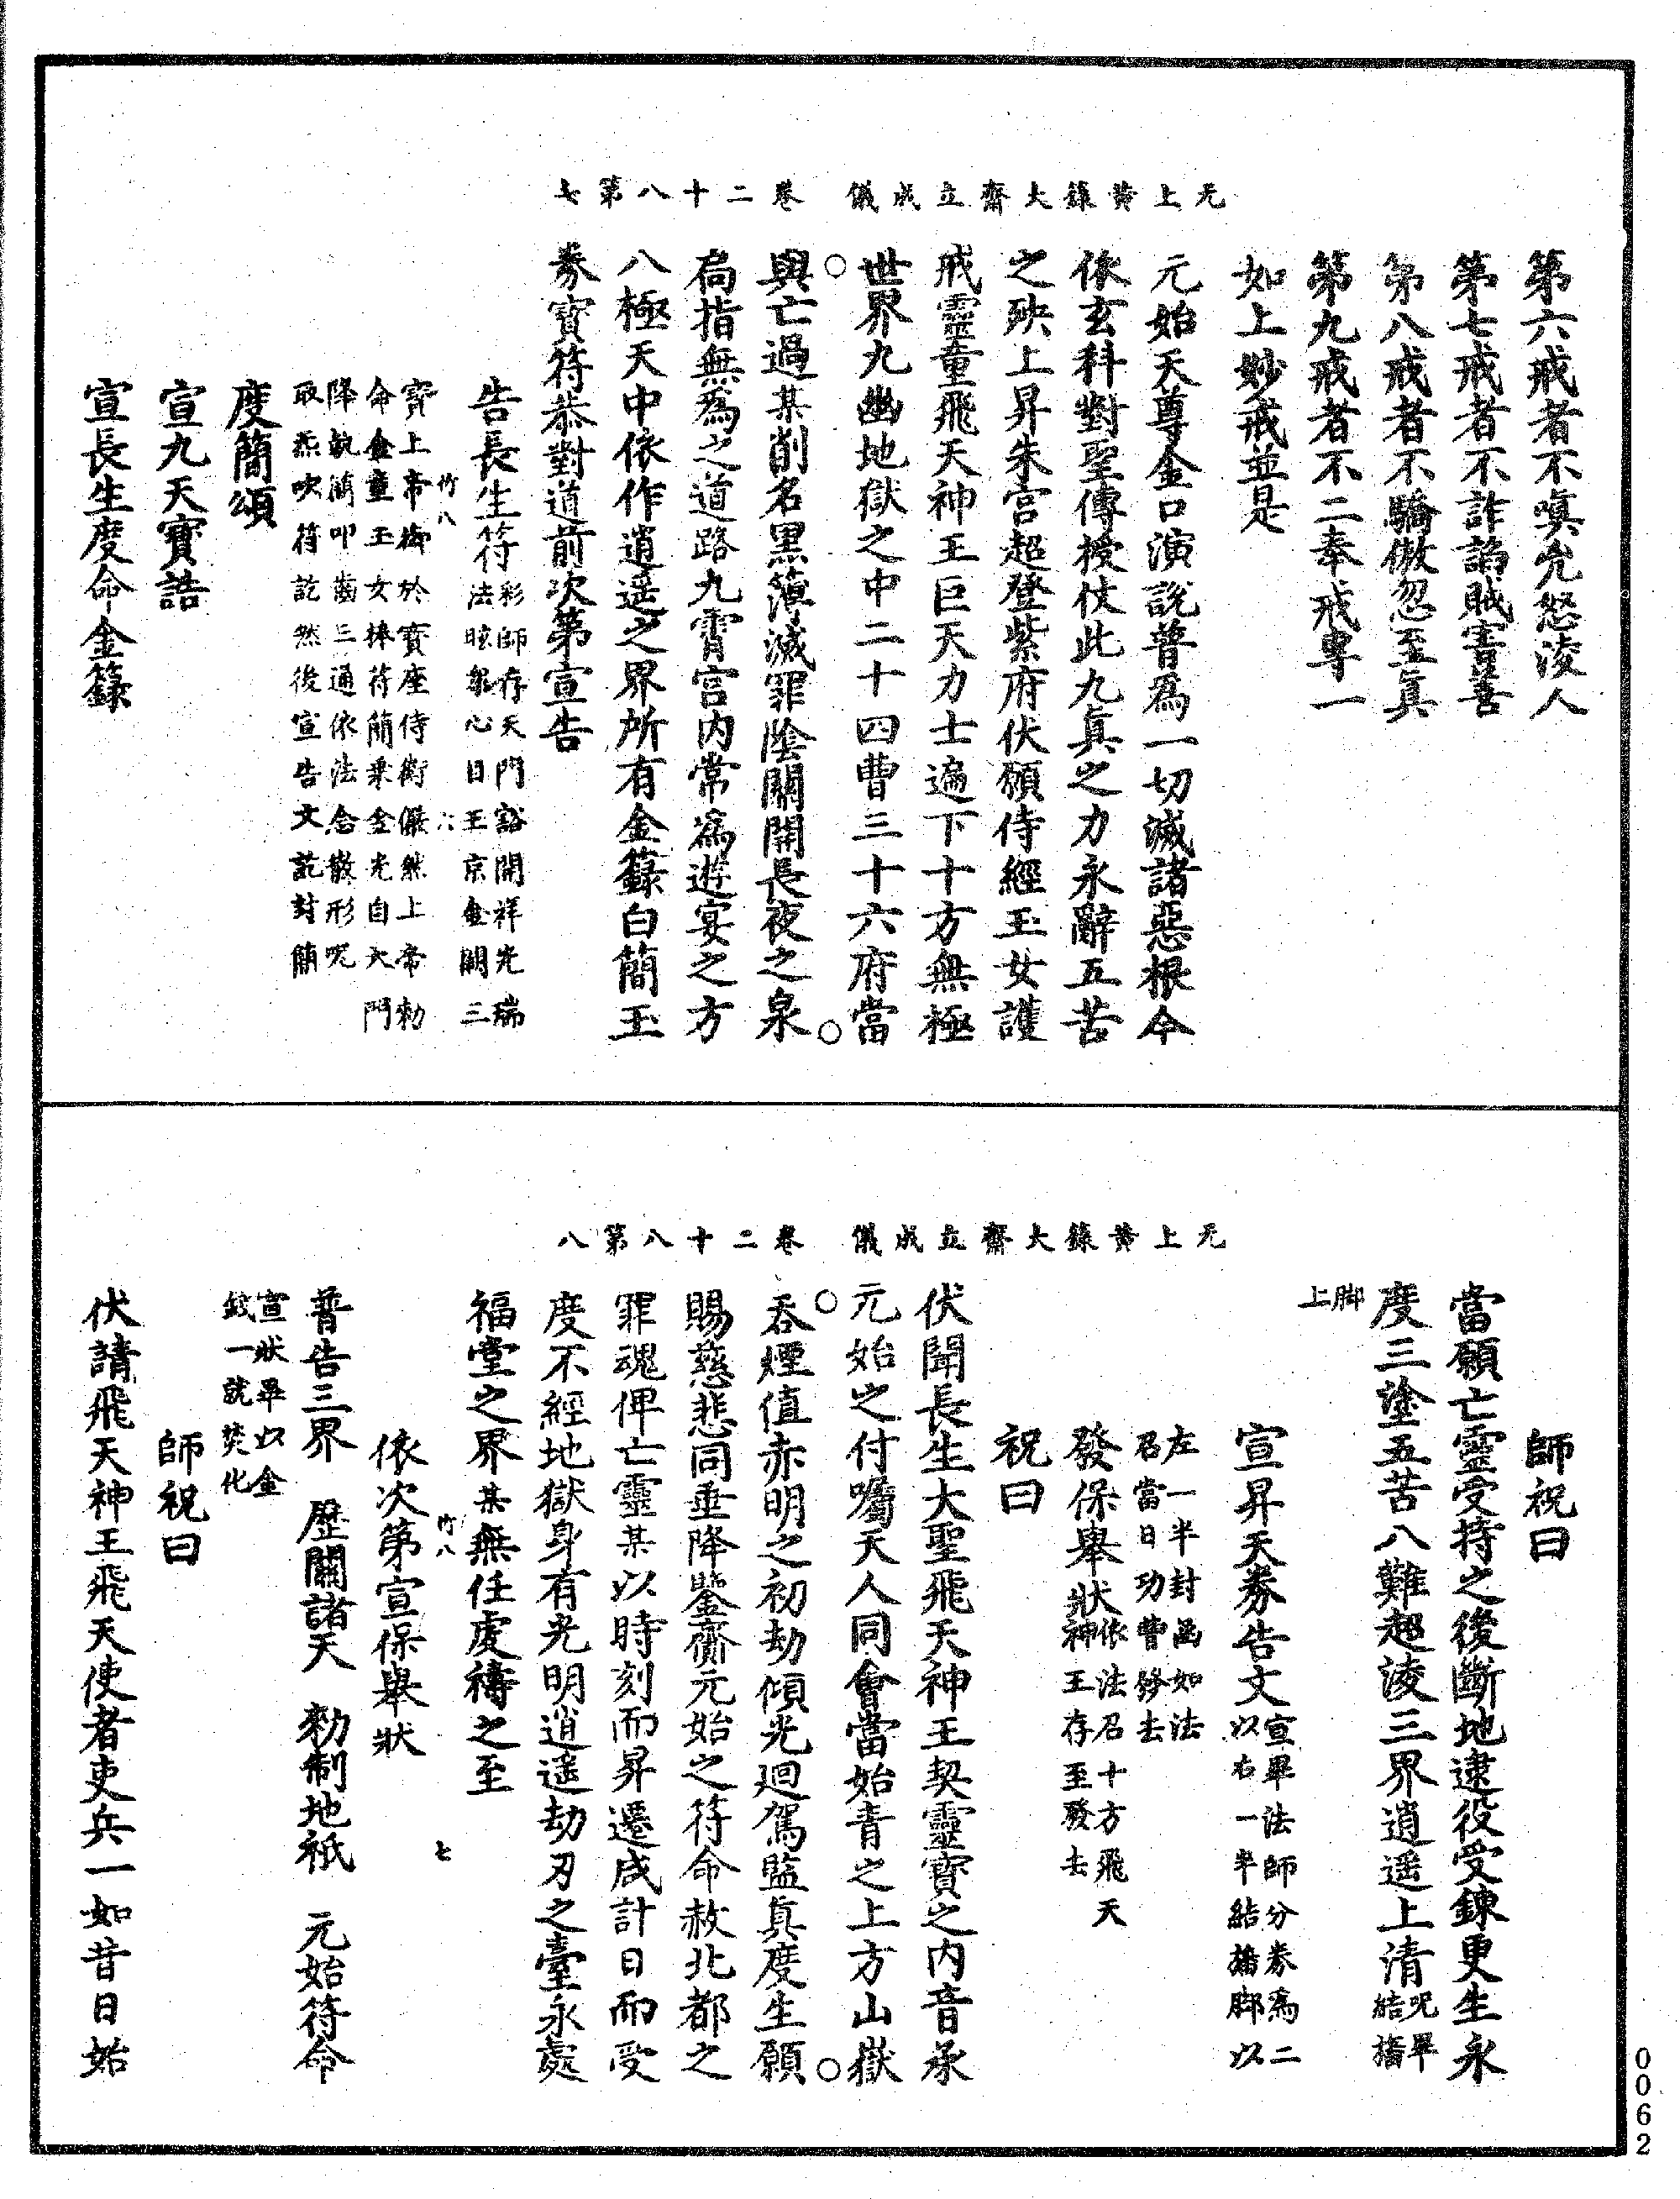 无上黃籙大齋立成儀　卷二十八第七
第六戒者不嗔允怒淩人
第七戒者不詐諂賊害善
第八戒者不驕傲忽至真
第九戒者不二奉戒專一
如上妙戒並是
元始天尊金口演說普爲一切滅諸惡根今
依玄科對聖傳授仗此九真之力永辭五苦
之殃上昇朱宫超登紫府伏願侍經玉女護
戒靈童飛天神王巨天力士遍下十方無極
世界九幽地獄之中二十四曹三十六府當
與亡過某削名黑簿滅罪陰關開長夜之泉
扃指無爲之道路九霄宫内常爲遊宴之方
八極天中依作逍遥之界所有金籙白簡玉
券寶符恭對道前次第宣告
告長生符彩師存天門豁開祥光瑞
法眩衆心目王京金闕三
竹八　六
寶上帝御於寶座侍衛儼然上帝勑
命金童玉女捧符簡乘金光自大門
降執簡叩齒三通依法念散形呪
取炁吹符訖然後宣告文訖封簡
度簡頌
宣九天寶誥
宣長生度命金籙
无上黃籙大齋立成儀　卷二十八第八
師祝曰
當願亡靈受持之後斷地逮役受鍊更生永
度三塗五苦八難超淩三界逍遥上清呪畢
結旛
脚
上
宣昇天券告文宣畢法師分券爲二
以右一半結旛脚以
左一半封函如法
召當日功曹發去
發保舉狀依法召十方飛天
神王存至發去
祝曰
伏聞長生大聖飛天神王契靈寶之内音承
元始之付囑天人同會當始青之上方山嶽
吞煙值赤明之初劫傾光迴駕監真度生願
賜慈悲同垂降鑒齎元始之符命赦北都之
罪魂俾亡靈某以時刻而昇遷咸計日而受
度不經地獄身有光明逍遥劫刃之臺永處
福堂之界某無任虔禱之至
竹八　七
依次第宣保舉狀
普告三界　歷關諸天　勑制地祇　元始符命
宣狀畢以金
錢一就焚化
師祝曰
伏請飛天神王飛天使者吏兵一如昔日始
0062